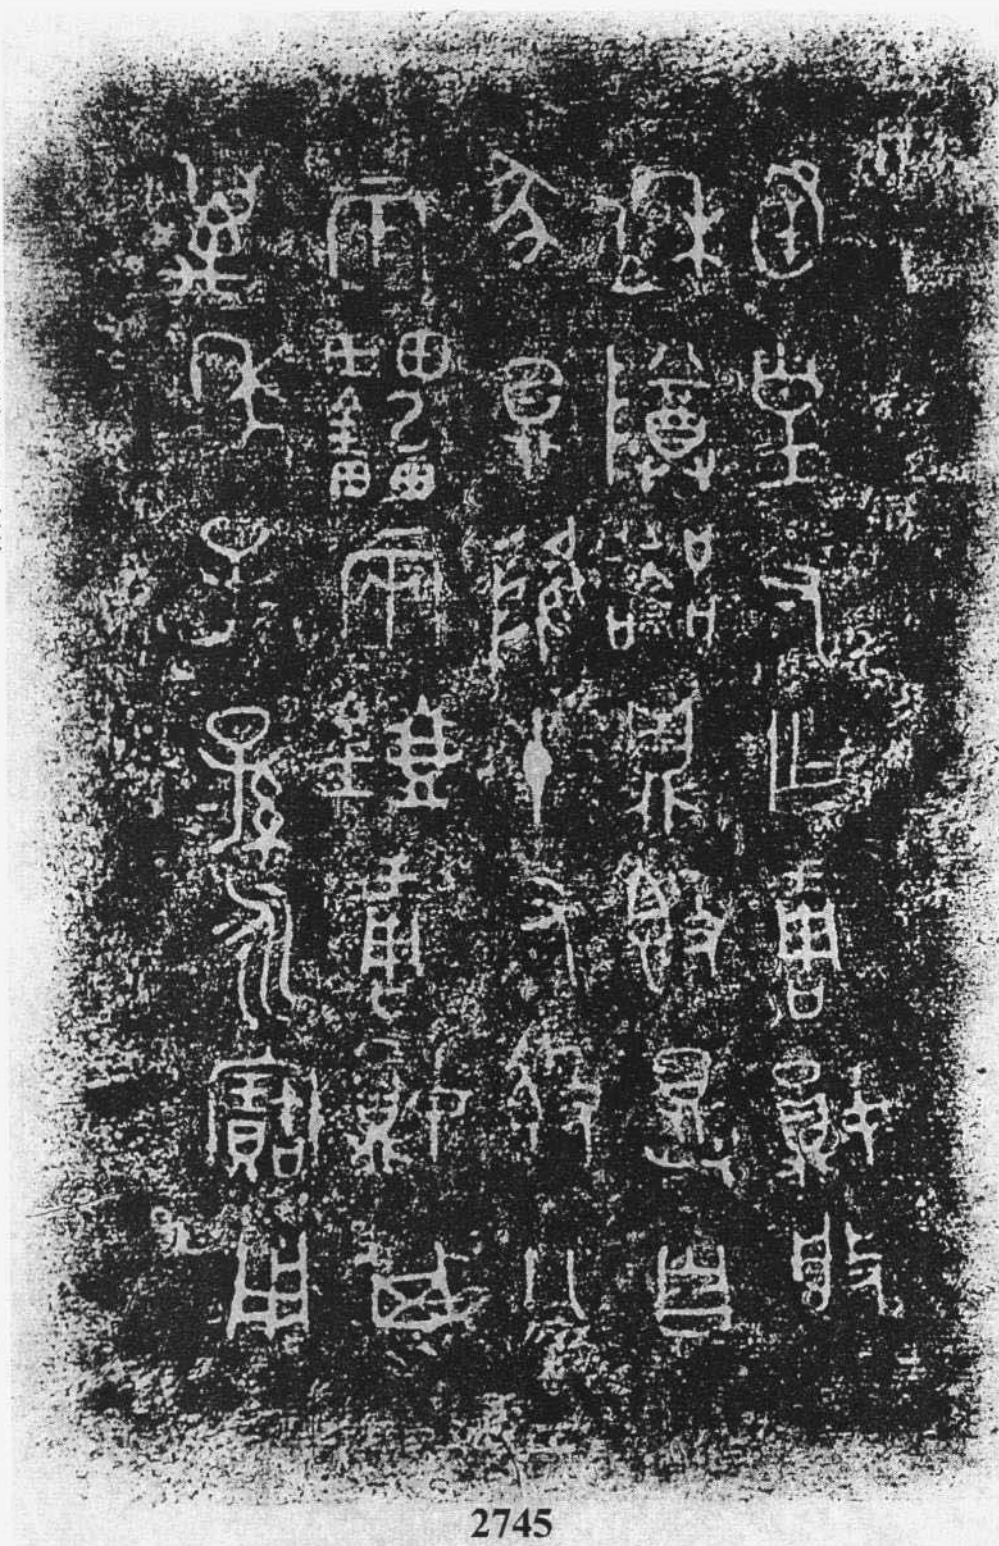 函皇父乍琱娟般
盉尊器鼎𣪘具自
豕鼎降十又𣪘八
兩罍兩壺琱娟其
萬年子孫永寶用
2745